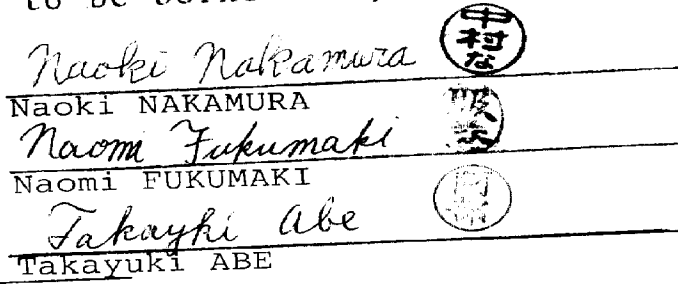 Naoki Nakamura 中村な
Naoki NAKAMURA
Naomi Fukumaki
Naomi FUKUMAKI
Takayki Abe 阿部
Takayuki ABE